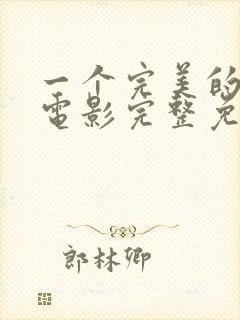 一个完美的
电影完整免
郎林卿